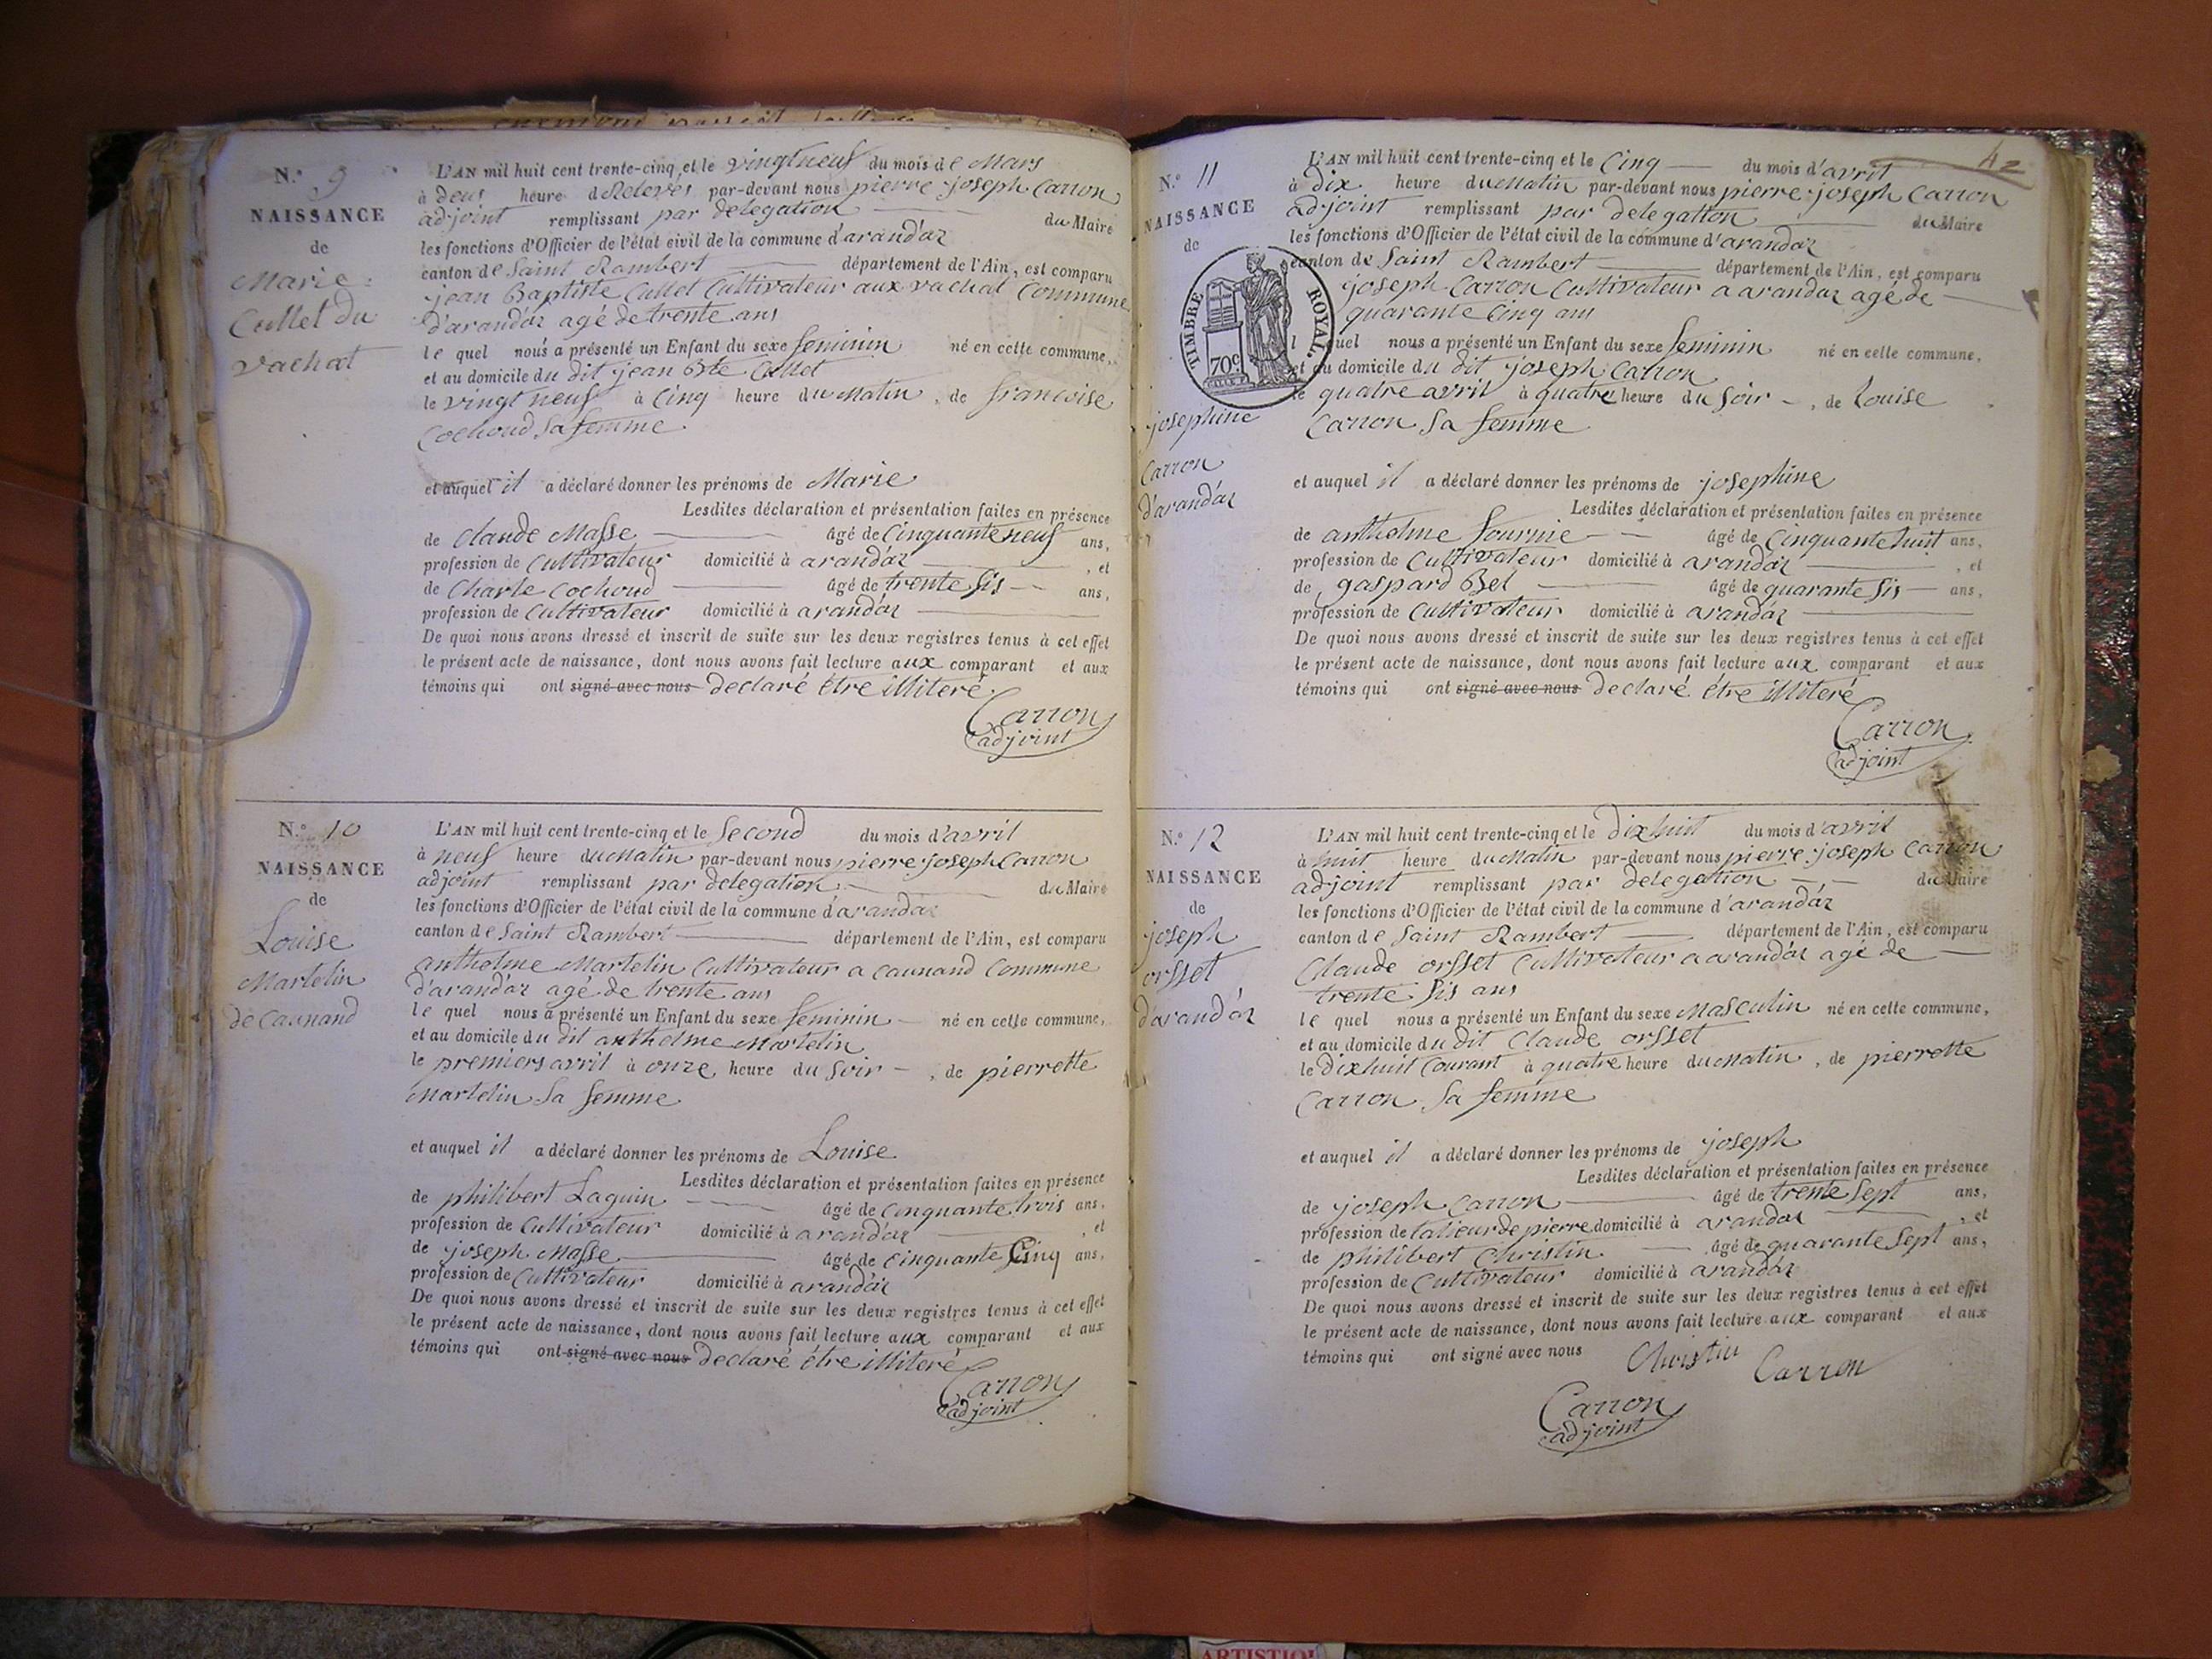 N.° 9
NAISSANCE
de
Marie
Cullet du
vachat
L'AN mil huit cent trente-cinq et le vingtneuf du mois de Mars
à deus heure de Relevés par-devant nous pierre joseph Carron
adjoint remplissant par delegation du Maire
les fonctions d'Officier de l'état civil de la commune d'arandáz
canton de Saint Rambert département de l'Ain, est comparu
jean Baptiste Cullet Cultivateur aux vachat Commune
d'arandáz agé de trente ans
le quel nous a présenté un Enfant du sexe feminin né en cette commune,
et au domicile du dit jean Bte Cullet
le vingt neuf à Cinq heure du Matin, de francoise
Cochoud sa femme
et auquel il a déclaré donner les prénoms de Marie
Lesdites déclaration et présentation faites en présence
de Claude Masse âgé de Cinquante neuf ans,
profession de Cultivateur domicilié à arandáz, et
de Charle Cochoud âgé de trente sis ans,
profession de Cultivateur domicilié à arandáz
De quoi nous avons dressé et inscrit de suite sur les deux registres tenus à cet effet
le présent acte de naissance, dont nous avons fait lecture aux comparant et aux
témoins qui ont signé avec nous declaré étre illiteré
Carron
adjoint
N.° 10
NAISSANCE
de
Louise
Martelin
de Caunand
L'AN mil huit cent trente-cinq et le Second du mois d'avril
à neuf heure du Matin par-devant nous pierre joseph Carron
adjoint remplissant par delegation du Maire
les fonctions d'Officier de l'état civil de la commune d'arandáz
canton de Saint Rambert département de l'Ain, est comparu
anthelme Martelin Cultivateur a Caunand Commune
d'arandáz agé de trente ans
le quel nous a présenté un Enfant du sexe feminin né en cette commune,
et au domicile du dit anthelme Martelin
le premiers avril à onze heure du Soir, de pierrette
Martelin Sa femme
et auquel il a déclaré donner les prénoms de Louise
Lesdites déclaration et présentation faites en présence
de philibert Laguin âgé de Cinquante trois ans,
profession de Cultivateur domicilié à arandáz, et
de joseph Masse âgé de Cinquante Cinq ans,
profession de Cultivateur domicilié à arandáz
De quoi nous avons dressé et inscrit de suite sur les deux registres tenus à cet effet
le présent acte de naissance, dont nous avons fait lecture aux comparant et aux
témoins qui ont signé avec nous declaré étre illiteré
Carron
adjoint
42
N.° 11
NAISSANCE
de
TIMBRE ROYAL.
70c.
josephine
Carron
d'arandáz
L'AN mil huit cent trente-cinq et le Cinq du mois d'avril
à dix heure du Matin par-devant nous pierre joseph Carron
adjoint remplissant par delegation du Maire
les fonctions d'Officier de l'état civil de la commune d'arandáz
canton de Saint Rambert département de l'Ain, est comparu
joseph Carron Cultivateur a arandaz agé de
quarante Cinq ans
l quel nous a présenté un Enfant du sexe feminin né en cette commune,
et au domicile du dit joseph Carron
le quatre avril à quatre heure du Soir, de Louise
Carron Sa femme
et auquel il a déclaré donner les prénoms de josephine
Lesdites déclaration et présentation faites en présence
de anthelme fournie âgé de Cinquante huit ans,
profession de Cultivateur domicilié à arandáz, et
de gaspard Bel âgé de quarante sis ans,
profession de Cultivateur domicilié à arandáz
De quoi nous avons dressé et inscrit de suite sur les deux registres tenus à cet effet
le présent acte de naissance, dont nous avons fait lecture aux comparant et aux
témoins qui ont signé avec nous declaré étre illiteré
Carron
adjoint
N.° 12
NAISSANCE
de
joseph
orsset
d'arandáz
L'AN mil huit cent trente-cinq et le dixhuit du mois d'avril
à huit heure du Matin par-devant nous pierre joseph Carron
adjoint remplissant par delegation du Maire
les fonctions d'Officier de l'état civil de la commune d'arandáz
canton de Saint Rambert département de l'Ain, est comparu
Claude orsset Cultivateur a arandáz agé de
trente Sis ans
le quel nous a présenté un Enfant du sexe Masculin né en cette commune,
et au domicile du dit Claude orsset
le dixhuit Courant à quatre heure du Matin, de pierrette
Carron Sa femme
et auquel il a déclaré donner les prénoms de joseph
Lesdites déclaration et présentation faites en présence
de joseph Carron âgé de trente sept ans,
profession de talieur de pierre domicilié à arandaz, et
de philibert Christin âgé de quarante Sept ans,
profession de Cultivateur domicilié à arandáz
De quoi nous avons dressé et inscrit de suite sur les deux registres tenus à cet effet
le présent acte de naissance, dont nous avons fait lecture aux comparant et aux
témoins qui ont signé avec nous Christin Carron
Carron
adjoint